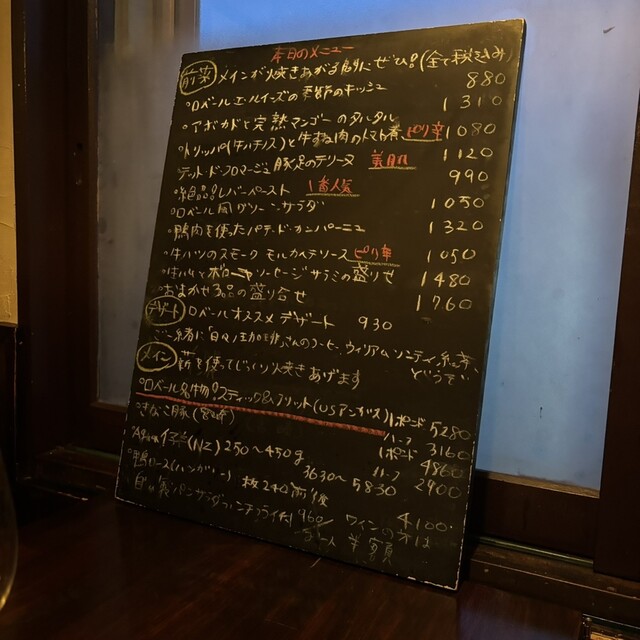 本日のメニュー
前菜 メインが焼きあがる前にぜひ!(全て税込み)
ロベールエールイーズの季節のキッシュ 880
アボカドと完熟マンゴーのタルタル 1310
トリッパ(牛ハチノス)と牛 肉のトマト煮 ピリ辛 1080
テット・ド・フロマージュ 豚足のテリーヌ 美肌 1120
絶品!レバーペースト 1番人気 990
ロベール風グリーンサラダ 1050
鴨肉を使ったパテ・ド・カンパーニュ 1320
牛ハツのスモーク モルカベテソース ピリ辛 1050
生ハムと ソーセージ サラミの盛り合せ 1480
おまかせ3品の盛り合せ 1760
デザート ロベールオススメ デザート 930
さんのコーヒー、ウィリアムソンティ 紅茶、どうぞ
メイン 薪を使ってじっくり焼きあげます
ロベール名物!スティック&フリット(USアンガス) 1ポンド 5280
ハーフ 3160
きなこ豚(宮崎) 1ポンド 4860
ハーフ 2900
仔羊(NZ) 250〜450g 3630〜5830
鴨ロース(ハンガリー) 枚240g前後 4100
パン 950 ワイン 方は半額